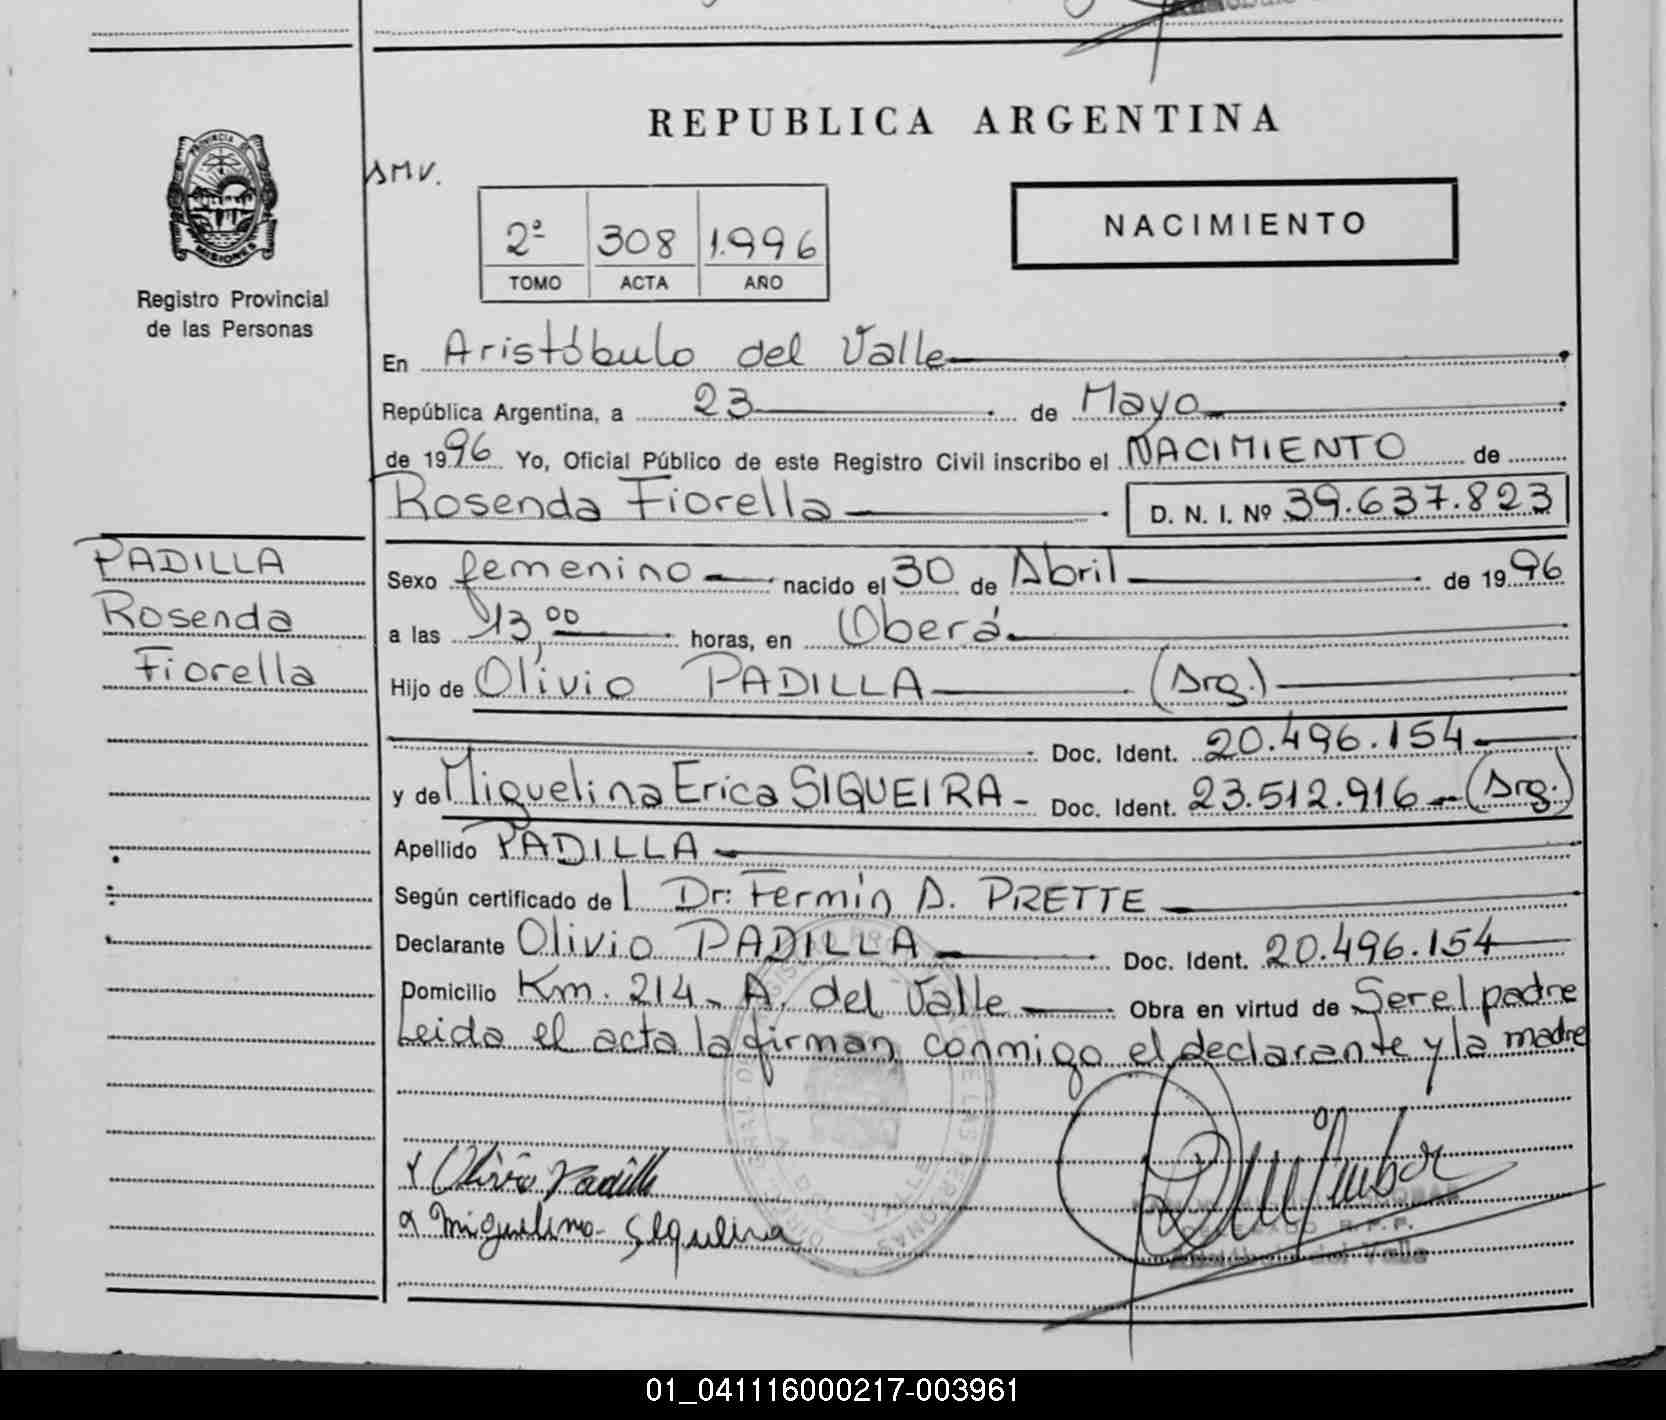 REPUBLICA ARGENTINA
PROVINCIA DE
MISIONES
Registro Provincial
de las Personas
SMV.
2ª 308 1.996
TOMO ACTA AÑO
NACIMIENTO
En Aristóbulo del Valle
República Argentina, a 23 de Mayo
de 1996 Yo, Oficial Público de este Registro Civil inscribo el NACIMIENTO de
Rosenda Fiorella D. N. I. Nº 39.637.823
PADILLA
Rosenda
Fiorella
Sexo femenino nacido el 30 de Abril de 1996
a las 13,00 horas, en Oberá
Hijo de Olivio PADILLA (Arg.)
Doc. Ident. 20.496.154
y de Miguelina Erica SIQUEIRA - Doc. Ident. 23.512.916 - (Arg.)
Apellido PADILLA
Según certificado del Dr: Fermín A. PRETTE
Declarante Olivio PADILLA Doc. Ident. 20.496.154
Domicilio Km. 214 - A. del Valle Obra en virtud de Ser el padre
Leida el acta la firman conmigo el declarante y la madre
x Olivio Padilla
x Miguelina Siqueira
R.P.P.
Aristóbulo del Valle
01_041116000217-003961